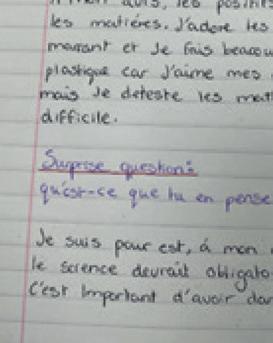 avis, les
les matières. J'adore les
marrant et Je fais beacou
plastique car J'aime mes
mais Je deteste les mat
difficile.
Surprise question:
qu'est-ce que tu en pense
Je suis pour est, á mon
le science devrait obligato
C'est important d'avoir dan